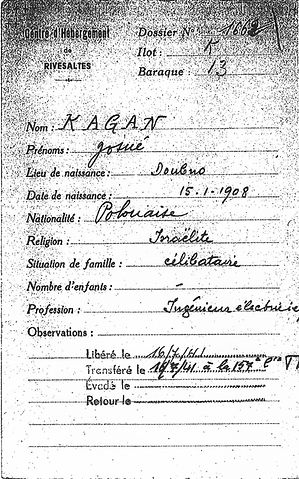 Centre d'Hébergement
de
RIVESALTES
Dossier N° 1662
Ilot: K
Baraque: 13
Nom: KAGAN
Prénoms: Josué
Lieu de naissance: Doubno
Date de naissance: 15.1-1908
Nationalité: Polonaise
Religion: Israélite
Situation de famille: célibataire
Nombre d'enfants: -
Profession: Ingénieur électricien
Observations:
Libéré le 16/7/41
Transféré le 16/7/41 à la 157e
Evadé le
Retour le